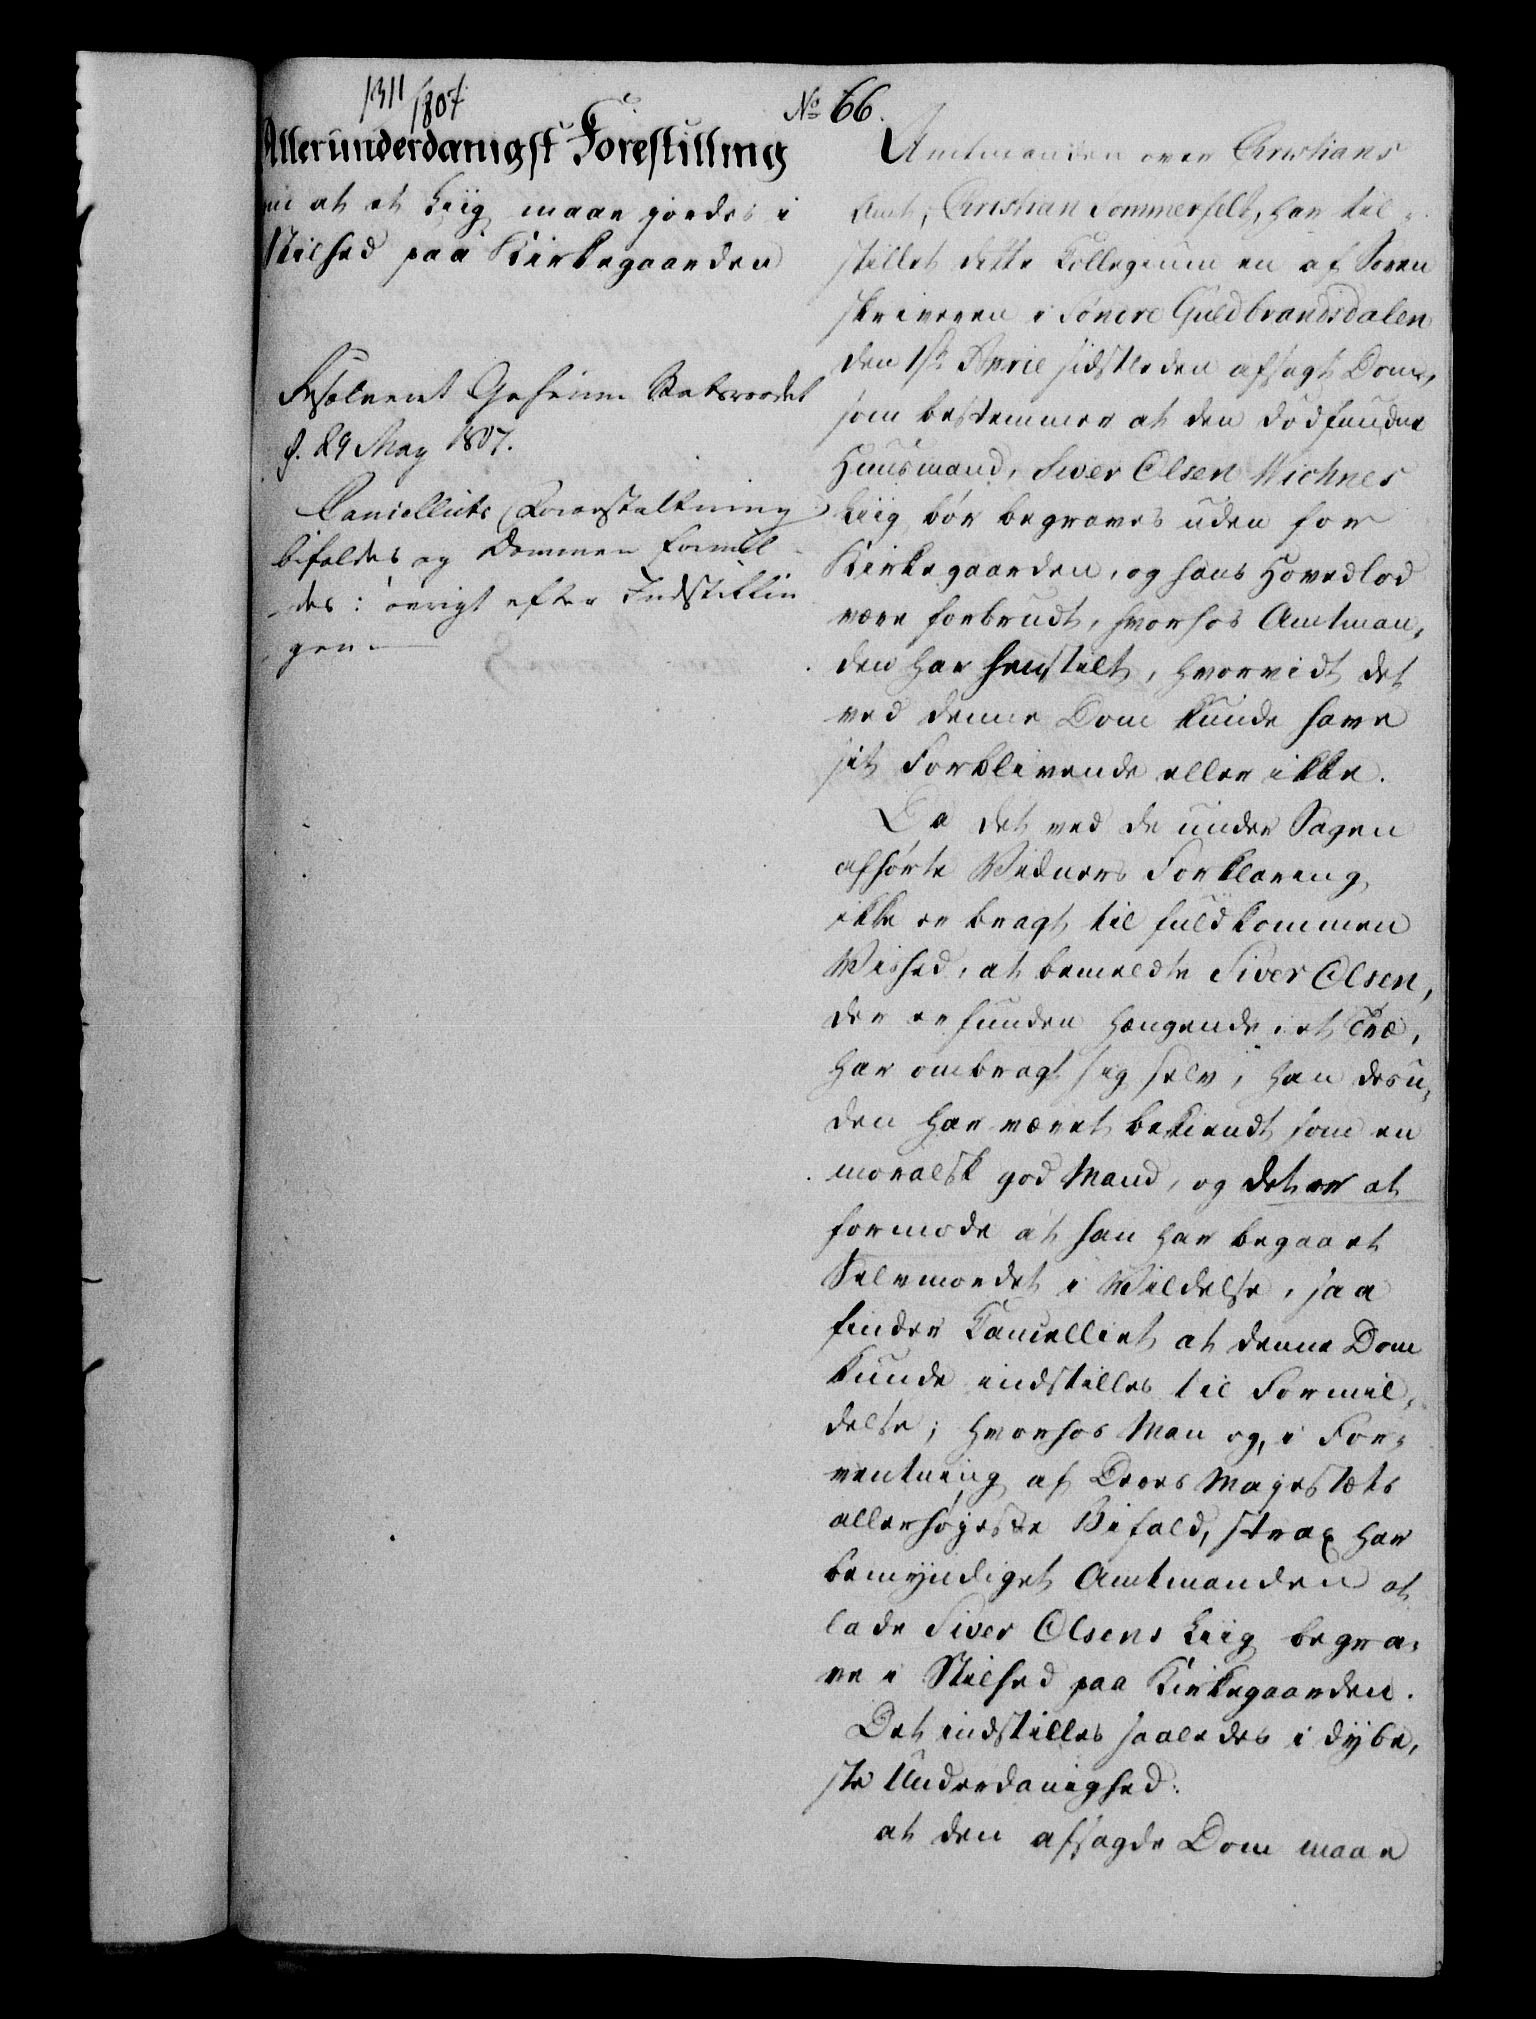 1311/1807
Allerunderdanigst Forestilling
om at et Liig maae jordes i
Stilhed paa Kirkegaarden
Resolveret Geheime Statsraadet
d. 29 May 1807.
Cancelliets Foranstaltning
bifaldes og Dommen formil-
des: øvrigt efter Indstillin
gen.
No 66.
Amtmanden over Christians
Amt, Christian Sommerfeldt, har til-
stillet dette Collegium en af Soren
skriveren i Søndre Guldbrandsdalen
den 1ste April sidstleden afsagt Dom,
som bestemmer at den dødfundne
Huusmand, Siver Olsen Wichnes
Liig bør begraves uden for
Kirkegaarden, og hans Hovedlod
være forbrudt, hvorhos Amtman-
den har henstilt, hvorvidt det
ved denne Dom kunde have
sit Forblivende eller ikke.
Da det ved de under Sagen
afhørte Vidners Forklaring
ikke er bragt til fuldkommen
Vished, at bemeldte Siver Olsen,
der er funden hængende i et Træ,
har ombragt sig selv, han desu-
den har været bekiendt som en
moralsk god Mand, og det er at
formode at han har begaaet
Selvmordet i Vildelse, saa
finder Cancelliet at denne Dom
kunde indstilles til Formil-
delse; hvorhos Man og, i For-
ventning af Deres Majestæts
allerhøjeste Bifald, strax har
bemyndiget Amtmanden at
lade Siver Olsens Liig begra-
ve i Stilhed paa Kirkegaarden.
Det indstilles saaledes i dybe-
ste Underdanighed:
at den afsagde Dom maae